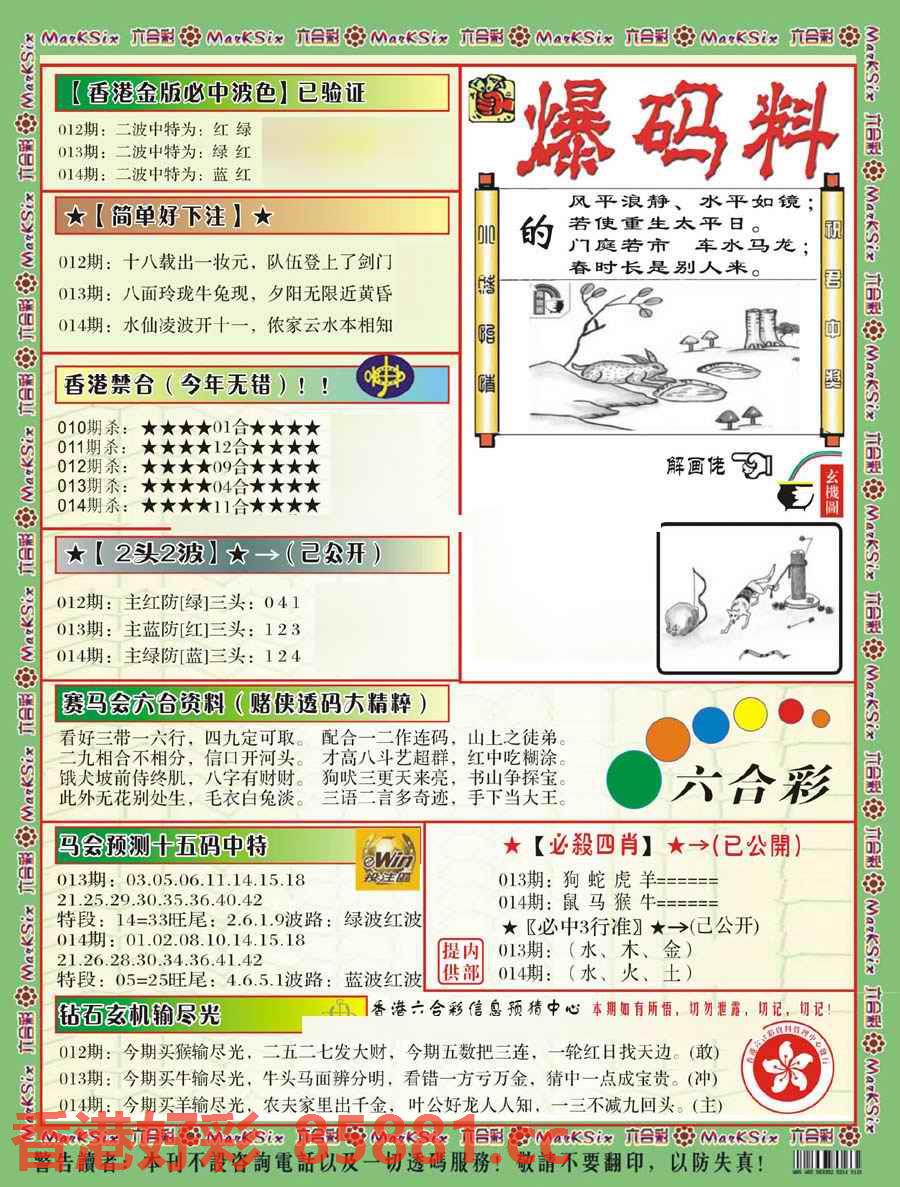 MarKSix 六合彩 MarKSix 六合彩 MarKSix 六合彩 MarKSix 六合彩 MarKSix 六合彩
【香港金版必中波色】已验证
012期：二波中特为：红 绿
013期：二波中特为：绿 红
014期：二波中特为：蓝 红
★【简单好下注】★
012期：十八载出一妆元，队伍登上了剑门
013期：八面玲珑牛兔现，夕阳无限近黄昏
014期：水仙凌波开十一，侬家云水本相知
香港禁合（今年无错）！！
010期杀：★★★★01合★★★★
011期杀：★★★★12合★★★★
012期杀：★★★★09合★★★★
013期杀：★★★★04合★★★★
014期杀：★★★★11合★★★★
★【 2头2波】★→(已公开)
012期：主红防[绿]三头：0 4 1
013期：主蓝防[红]三头：1 2 3
014期：主绿防[蓝]三头：1 2 4
爆码料
的
风平浪静、水平如镜；
若使重生太平日。
门庭若市 车水马龙；
春时长是别人来。
祝君中奖
解画佬
玄機圖
赛马会六合资料（赌侠透码大精粹）
看好三带一六行，四九定可取。 配合一二作连码，山上之徒弟。
二九相合不相分，信口开河头。 才高八斗艺超群，红中吃糊涂。
饿犬坡前侍终肌，八字有财财。 狗吠三更天来亮，书山争探宝。
此外无花别处生，毛衣白兔淡。 三语二言多奇迹，手下当大王。
六合彩
马会预测十五码中特
eWin
投注區
013期：03.05.06.11.14.15.18
21.25.29.30.35.36.40.42
特段：14=33旺尾：2.6.1.9波路：绿波红波
014期：01.02.08.10.14.15.18
21.26.28.30.34.36.41.42
特段：05=25旺尾：4.6.5.1波路：蓝波红波
★【必殺四肖】★→(已公開)
013期：狗 蛇 虎 羊======
014期：鼠 马 猴 牛======
★〖必中3行准〗★→(已公开)
013期：（水、木、金）
014期：（水、火、土）
提内
供部
钻石玄机输尽光
香港六合彩信息预猜中心 本期如有所悟，切勿泄露，切记，切记！
012期：今期买猴输尽光，二五二七发大财，今期五数把三连，一轮红日找天边。(敢)
013期：今期买牛输尽光，牛头马面辨分明，看错一方亏万金，猜中一点成宝贵。(冲)
014期：今期买羊输尽光，农夫家里出千金，叶公好龙人人知，一三不减九回头。(主)
香港好彩 85881.cc
MarKSix 六合彩 MarKSix 六合彩 MarKSix 六合彩 MarKSix 六合彩 MarKSix 六合彩
警告讀者：本刊不設咨詢電話以及一切透碼服務！敬請不要翻印，以防失真！